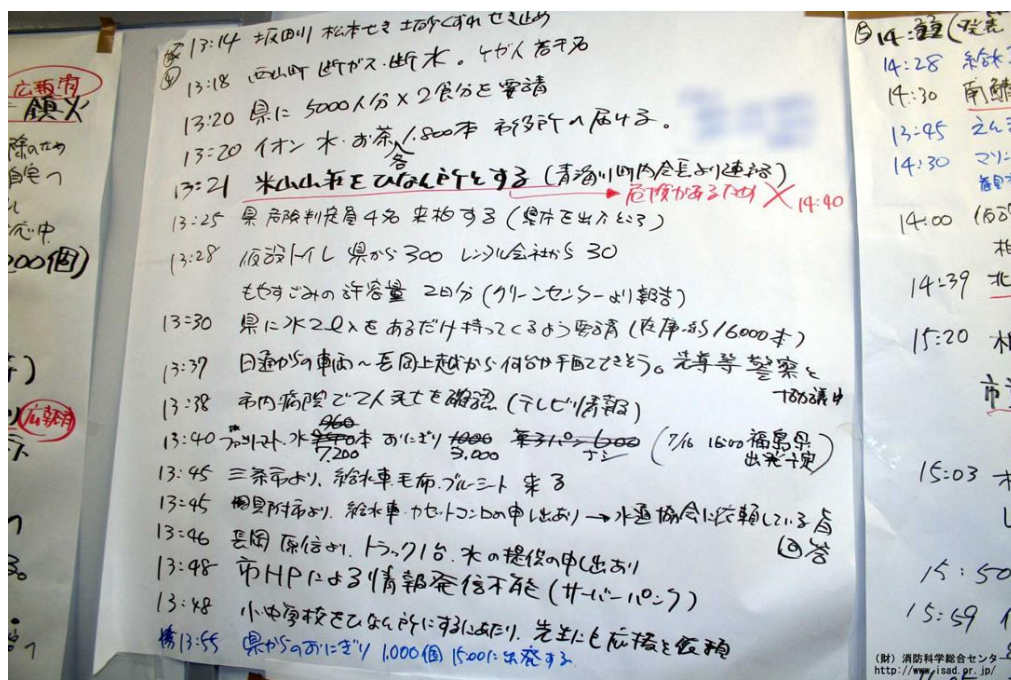 広報済
鎮火
200個)
広報済
13:14 坂田川 松本せき 土砂くずれ せき止め
13:18 西山町 断ガス・断水。ケガ人 若干名
13:20 県に 5000人分×2食分を要請
13:20 イオン 水・お茶 各 1,800本 市役所へ届ける。
13:21 米山山荘をひなん所とする (青海川町内会長より連絡)
危険があるため × 14:40
13:25 県 危険判定員4名 来柏する
13:28 仮設トイレ 県から300 レンタル会社から 30
もやすごみの許容量 2日分 (クリーンセンターより報告)
13:30 県に水2ℓ入をあるだけ持ってくるよう要請 (在庫 約16,000本)
13:37 日通からの車両〜長岡上越から何台か手配できそう。先導等 警察と
協議中
13:38 市内病院で2人死亡を確認 (テレビ情報)
960
13:40 ファミリーマト 水 本 おにぎり 1000 菓子パン 600 (7/16 16:00 福島県
7,200 3,000 ナシ 出発予定)
13:45 三条市より、給水車・毛布・ブルーシート 来る
13:45 見附市より、給水車・カセットコンロの申し出あり → 水道協会に依頼している旨
回答
13:46 長岡 原信より、トラック1台、水の提供の申し出あり
13:48 市HPによる情報発信不能 (サーバーパンク)
13:48 小中学校をひなん所にするにあたり、先生にも応援を依頼
13:55 県からのおにぎり 1,000個 15:00に出発する
14:28 給水
14:30
13:45 えん
14:30 マリン
14:00 仮設
14:39 北
15:20 柏
市
15:03
15:50
15:59
(財)消防科学総合センター
http://www.isad.or.jp/